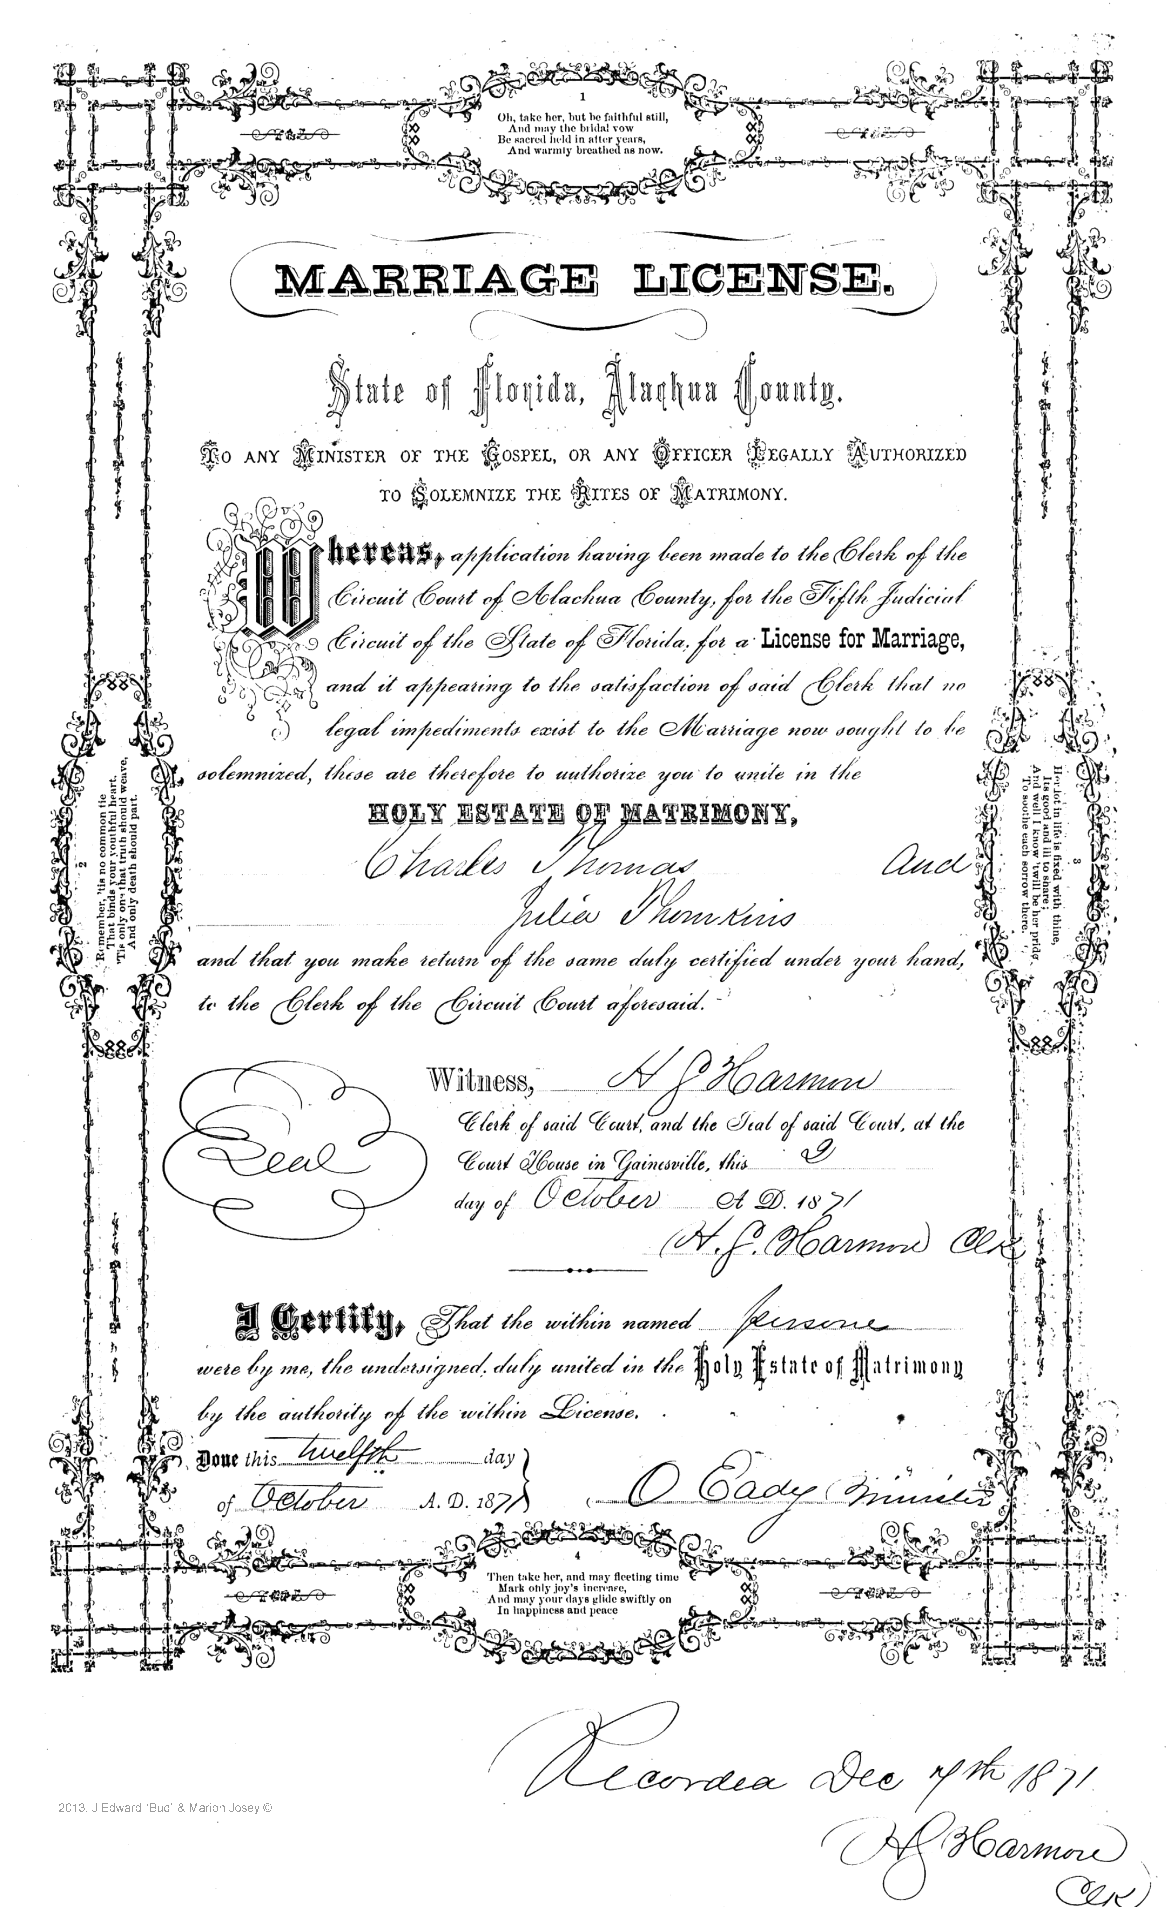 1
Oh, take her, but be faithful still,
And may the bridal vow
Be sacred held in after years,
And warmly breathed as now.
MARRIAGE LICENSE.
State of Florida, Alachua County.
TO ANY MINISTER OF THE GOSPEL, OR ANY OFFICER LEGALLY AUTHORIZED
TO SOLEMNIZE THE RITES OF MATRIMONY.
Whereas, application having been made to the Clerk of the
Circuit Court of Alachua County, for the Fifth Judicial
Circuit of the State of Florida, for a License for Marriage,
and it appearing to the satisfaction of said Clerk that no
legal impediments exist to the Marriage now sought to be
solemnized, these are therefore to authorize you to unite in the
HOLY ESTATE OF MATRIMONY,
Charles Thomas And
Julia Thomkins
and that you make return of the same duly certified under your hand,
to the Clerk of the Circuit Court aforesaid.
2
Remember, 'tis no common tie
That binds your youthful heart,
'Tis only one that truth should weave,
And only death should part.
3
Her lot in life is fixed with thine,
Its good and ill to share;
And well I know 'twill be her pride
To soothe each sorrow there.
Seal
Witness, H J Harmon
Clerk of said Court, and the Seal of said Court, at the
Court House in Gainesville, this 2
day of October A. D. 1871
(H. J. Harmon) Clk
I Certify, That the within named persons
were by me, the undersigned, duly united in the Holy Estate of Matrimony
by the authority of the within License.
Done this twelfth day
of October A. D. 1871
O Eady Minister
4
Then take her, and may fleeting time
Mark only joy's increase,
And may your days glide swiftly on
In happiness and peace
Recorded Dec 7th 1871
H J Harmon
Clk
2013. J Edward 'Bud' & Marion Josey ©